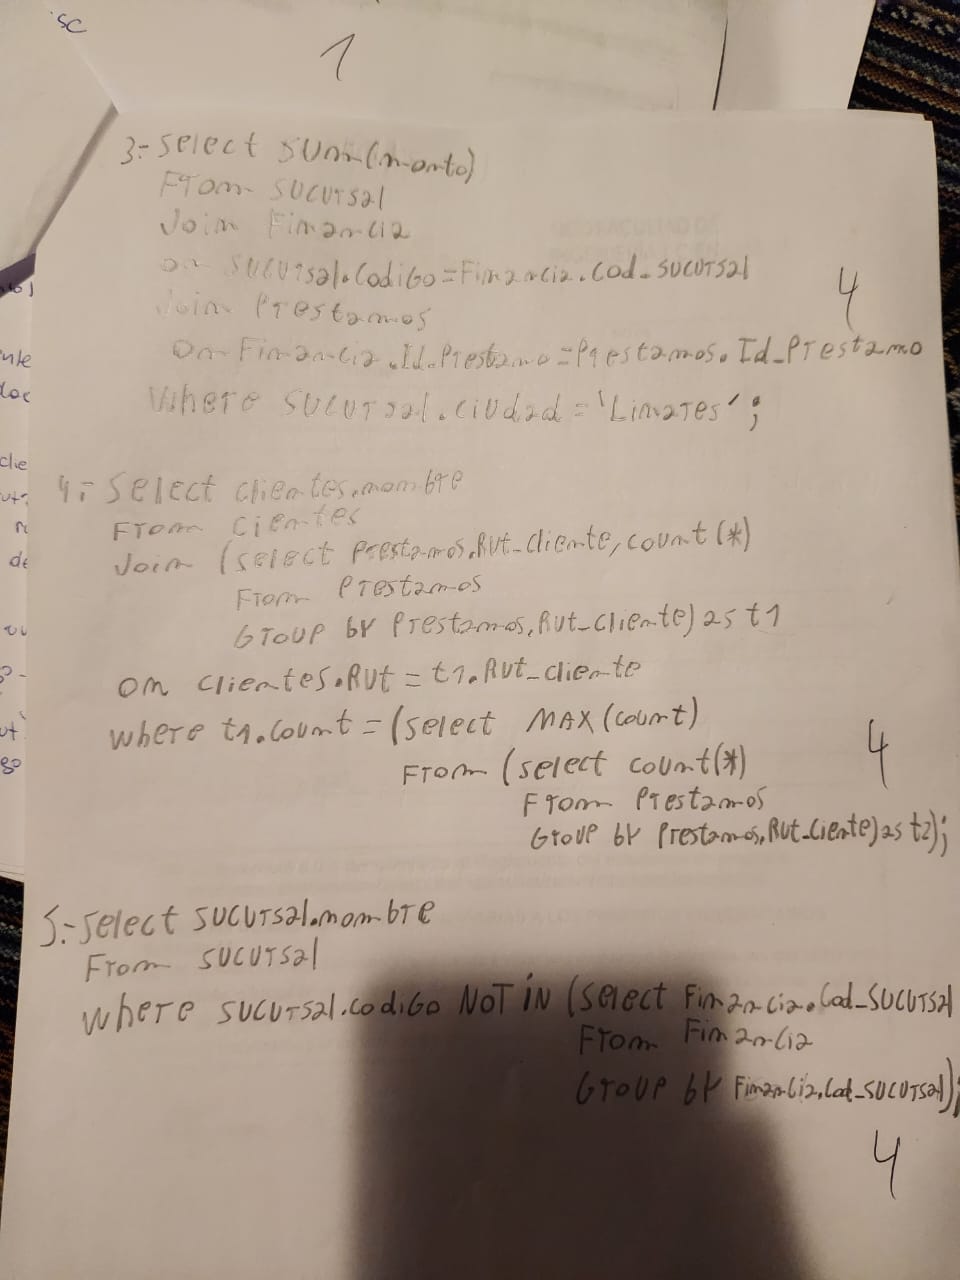 sc
1
3.- Select SUM(monto)
From sucursal
Join Financia
on sucursal.codigo=Financia.cod_sucursal
Join Prestamos
4
on Financia.Id_Prestamo=Prestamos.Id_Prestamo
Where sucursal.ciudad = 'Linares';
4.- Select clientes.nombre
From cientes
Join (select Prestamos.Rut_cliente, count(*)
From Prestamos
Group by Prestamos.Rut_cliente) as t1
on clientes.Rut = t1.Rut_cliente
where t1.count = (select MAX(count)
4
From (select count(*)
From Prestamos
Group by Prestamos.Rut_Ciente) as t2);
5.- Select sucursal.nombre
From sucursal
where sucursal.codigo NOT IN (select Financia.Cod_sucursal
From Financia
Group by Financia.Cod_sucursal);
4